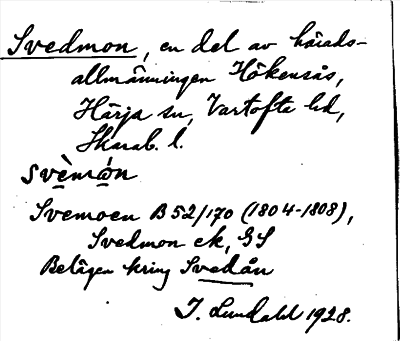 Svedmon, en del av härads-
allmänningen Hökensås,
Härja sn, Vartofta hd,
Skarab. l.
svèmón
Svemoen B52/170 (1804-1808),
Svedmon ek, GS
Belägen kring Svedån
J. Lundahl 1928.